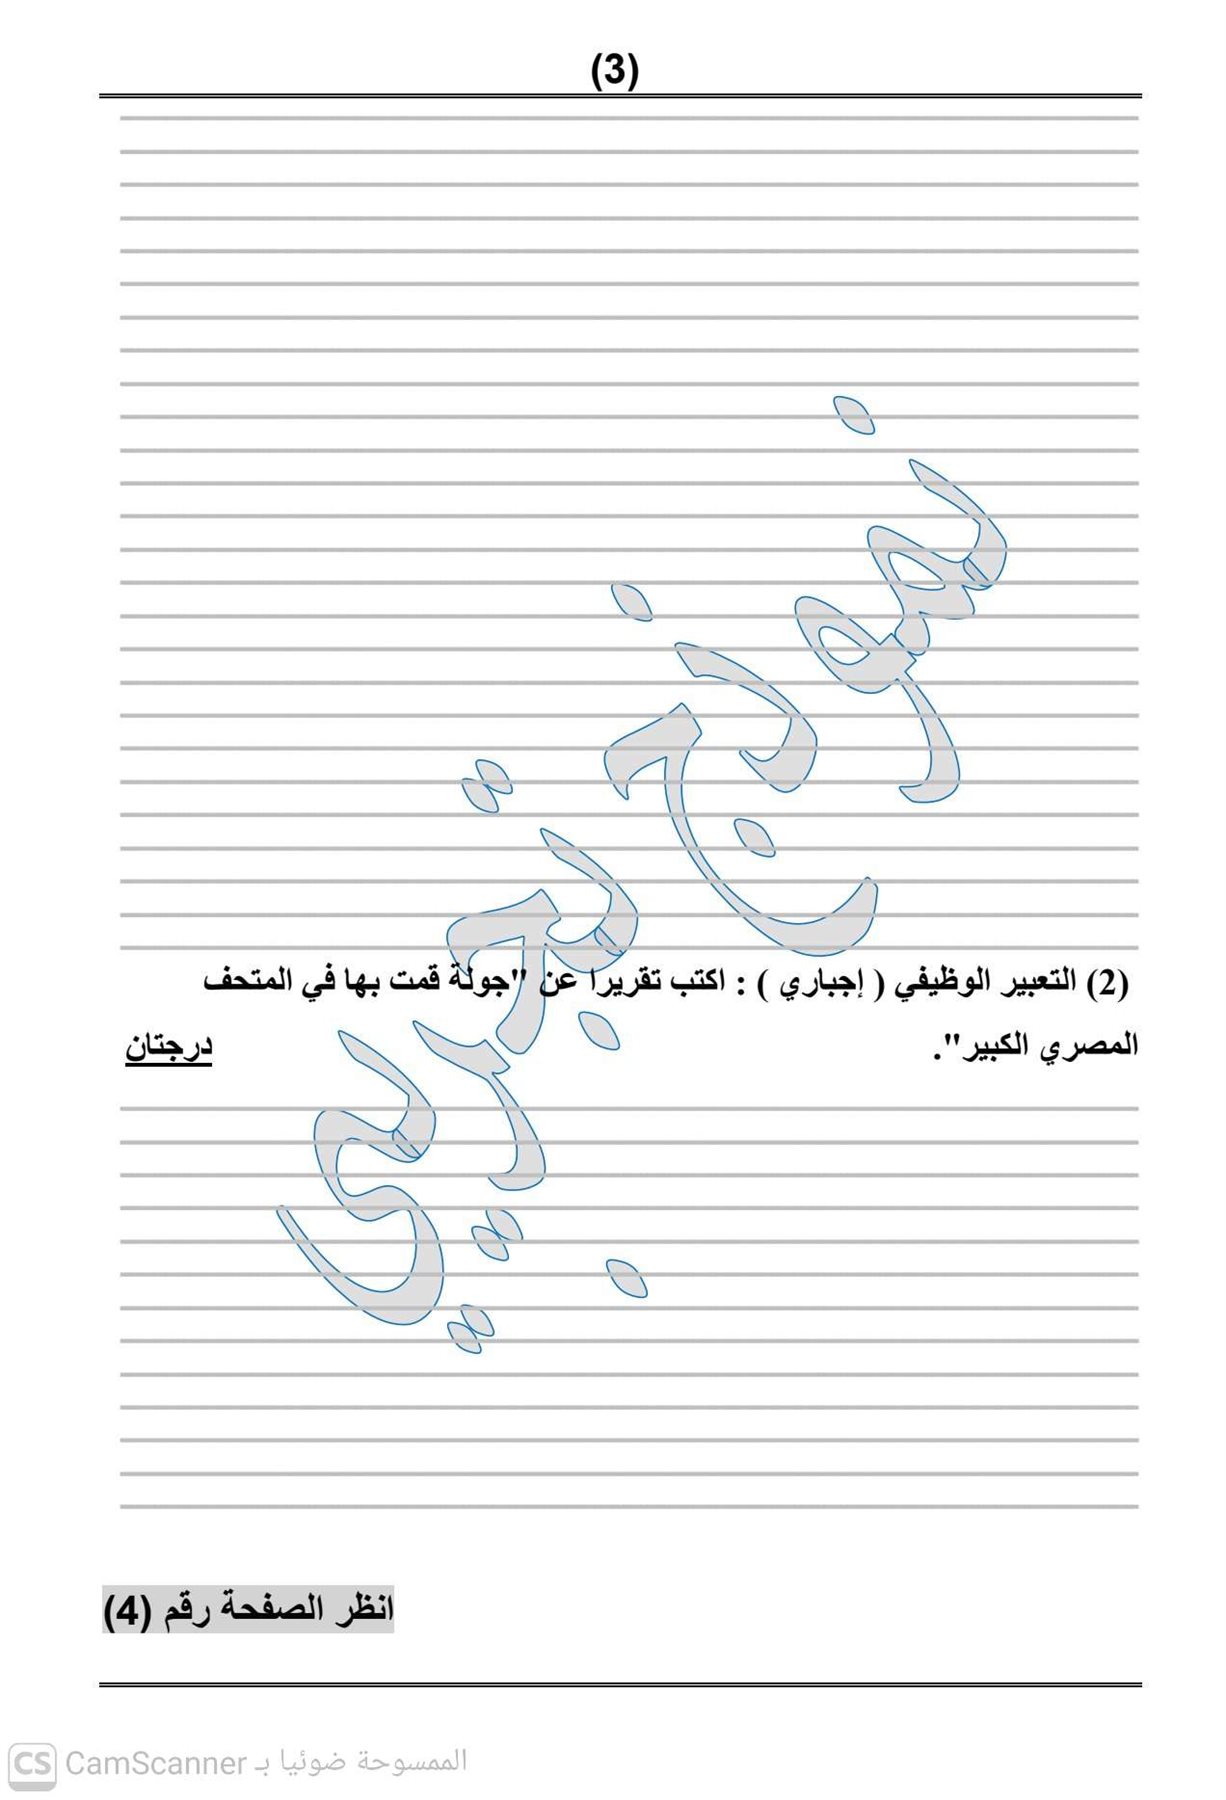 (3)
(2) التعبير الوظيفي ( إجباري ) : اكتب تقريرا عن "جولة قمت بها في المتحف
المصري الكبير". درجتان
نموذج تجريبي
انظر الصفحة رقم (4)
CS CamScanner الممسوحة ضوئيا بـ